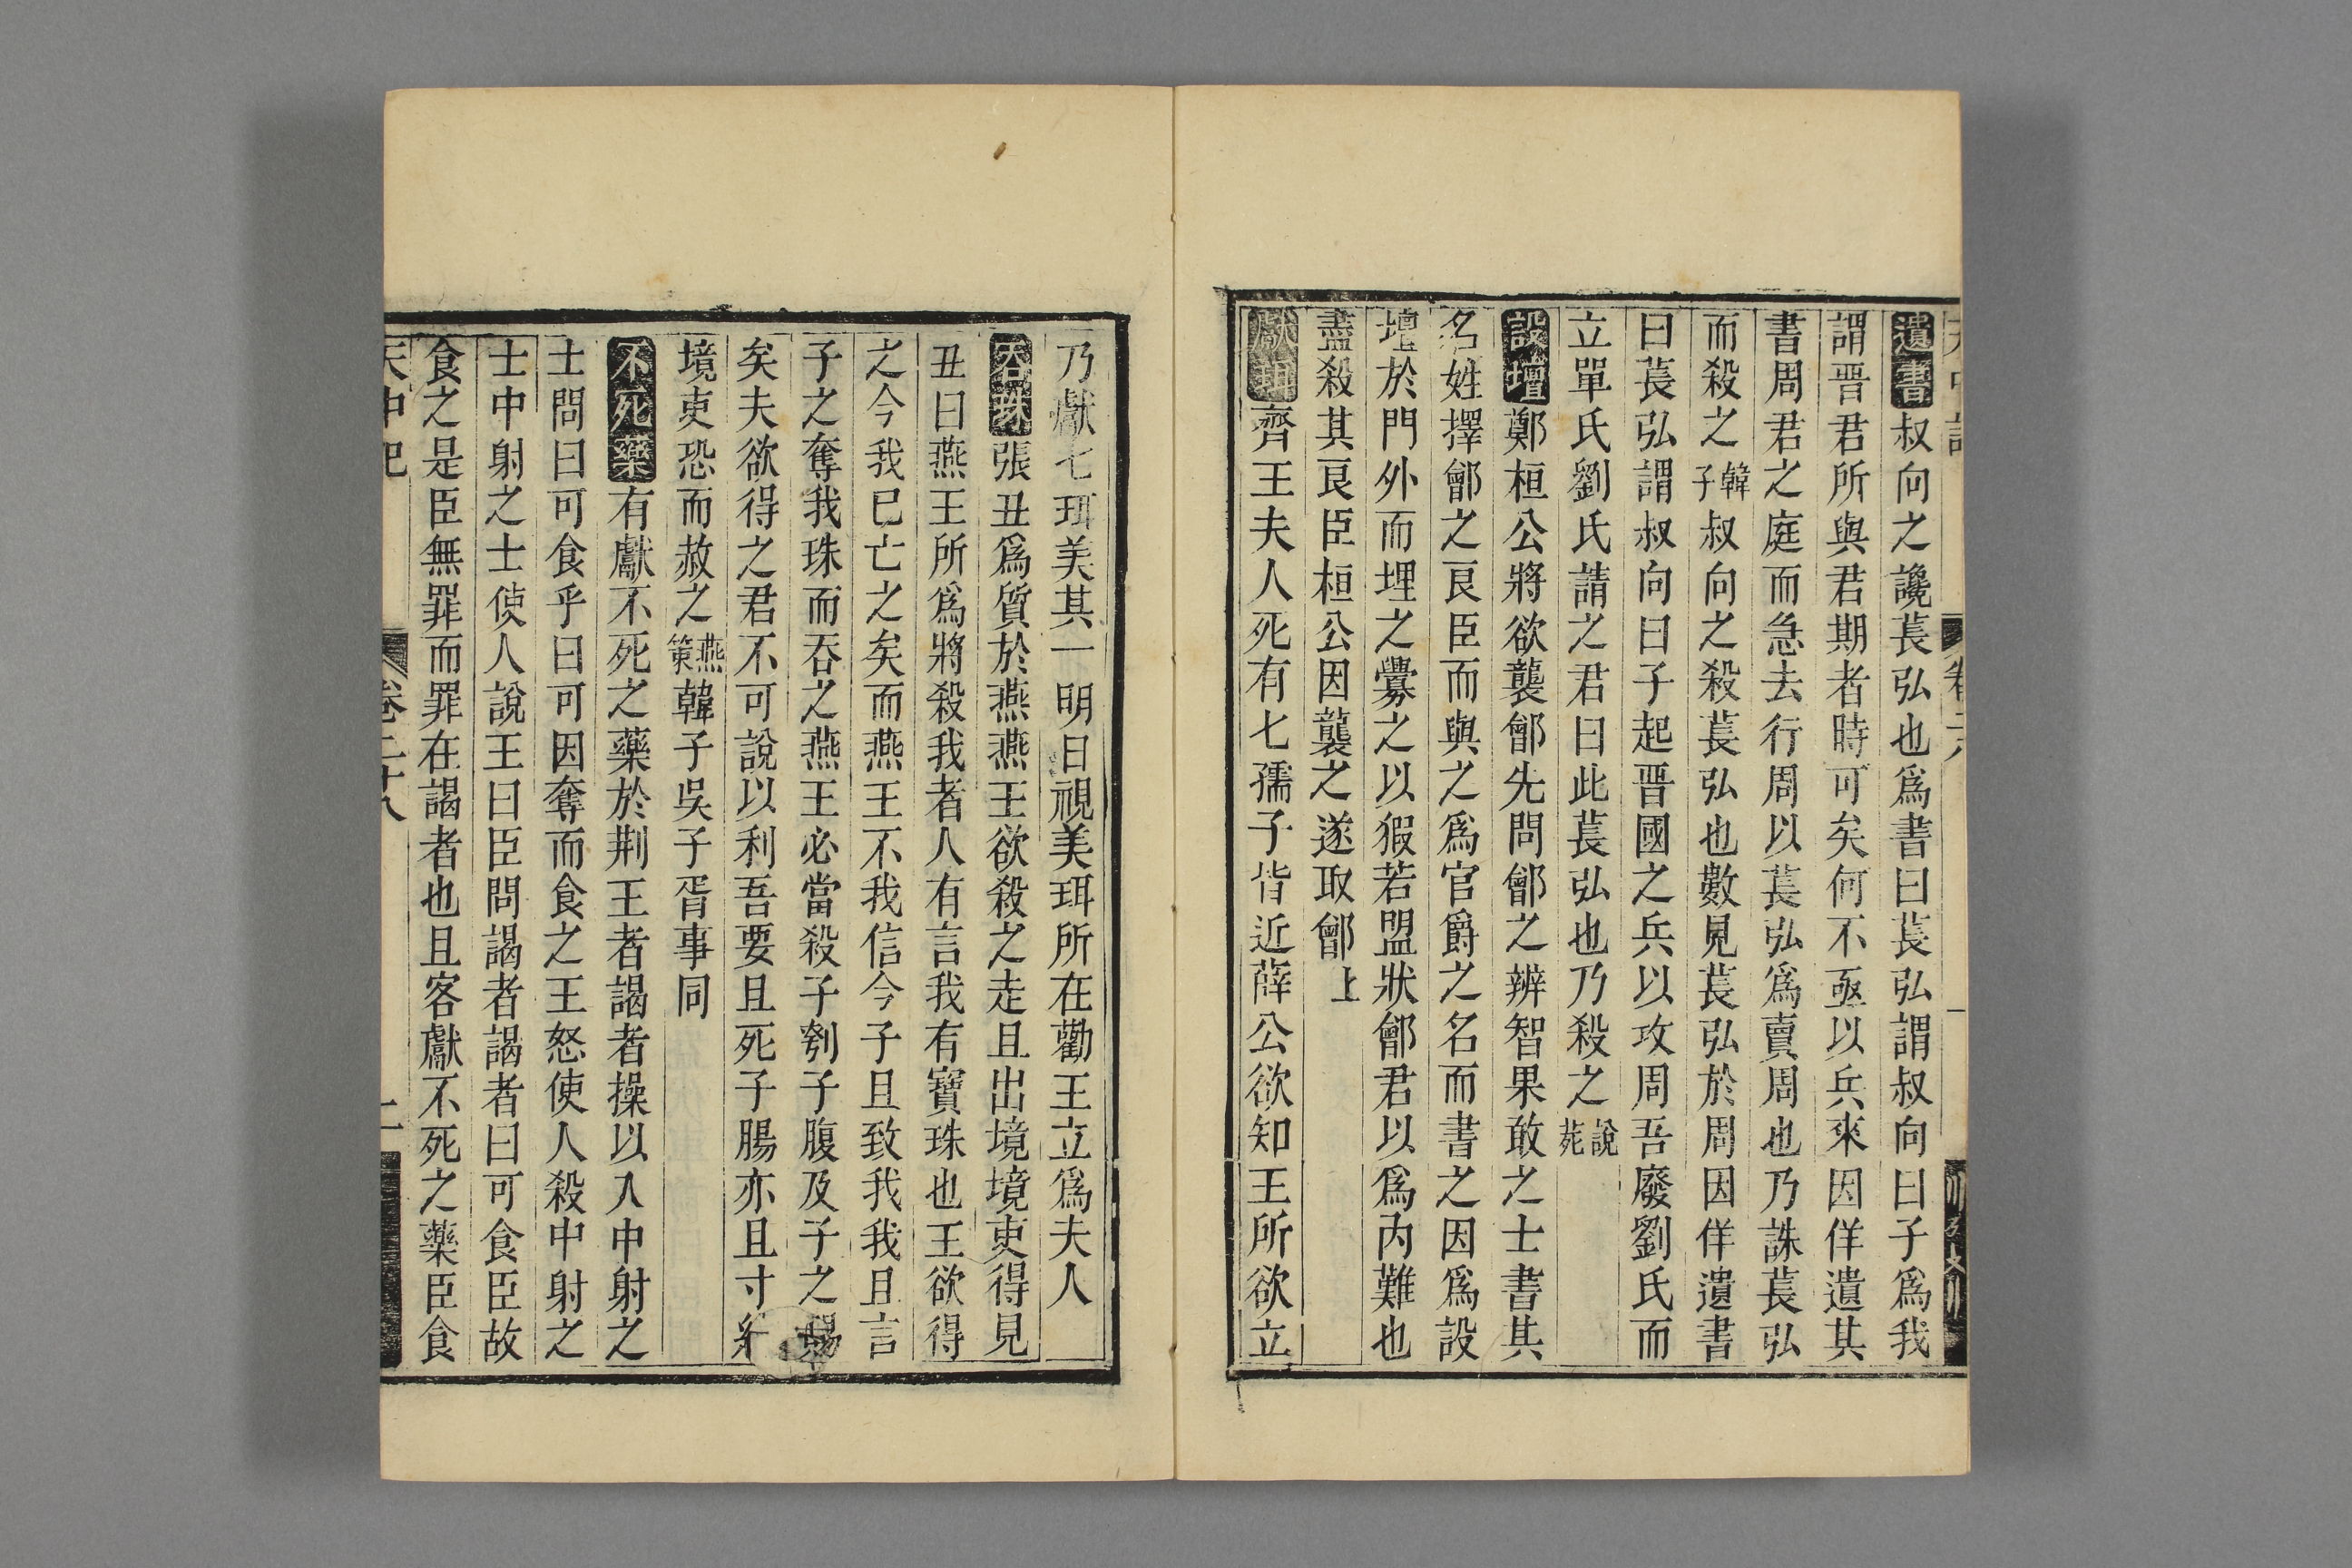 遺書叔向之讒萇弘也爲書曰萇弘謂叔向曰子爲我
謂晋君所與君期者時可矣何不亟以兵來因佯遺其
書周君之庭而急去行周以萇弘爲賣周也乃誅萇弘
而殺之韓子叔向之殺萇弘也數見萇弘於周因佯遺書
曰萇弘謂叔向曰子起晋國之兵以攻周吾廢劉氏而
立單氏劉氏請之君曰此萇弘也乃殺之說苑
設壇鄭桓公將欲襲鄶先問鄶之辨智果敢之士書其
名姓擇鄶之良臣而與之爲官爵之名而書之因爲設
壇於門外而埋之釁之以猳若盟狀鄶君以爲内難也
盡殺其良臣桓公因襲之遂取鄶上
獻珥齊王夫人死有七孺子皆近薛公欲知王所欲立
乃獻七珥美其一明日視美珥所在勸王立爲夫人
吞珠張丑爲質於燕燕王欲殺之走且出境境吏得見
丑曰燕王所爲將殺我者人有言我有寶珠也王欲得
之今我已亡之矣而燕王不我信今子且致我我且言
子之奪我珠而吞之燕王必當殺子刳子腹及子之腸
矣夫欲得之君不可說以利吾要且死子腸亦且寸
境吏恐而赦之燕策韓子吳子胥事同
不死藥有獻不死之藥於荆王者謁者操以入中射之
士問曰可食乎曰可因奪而食之王怒使人殺中射之
士中射之士使人說王曰臣問謁者謁者曰可食臣故
食之是臣無罪而罪在謁者也且客獻不死之藥臣食
天中記 卷二十八 二